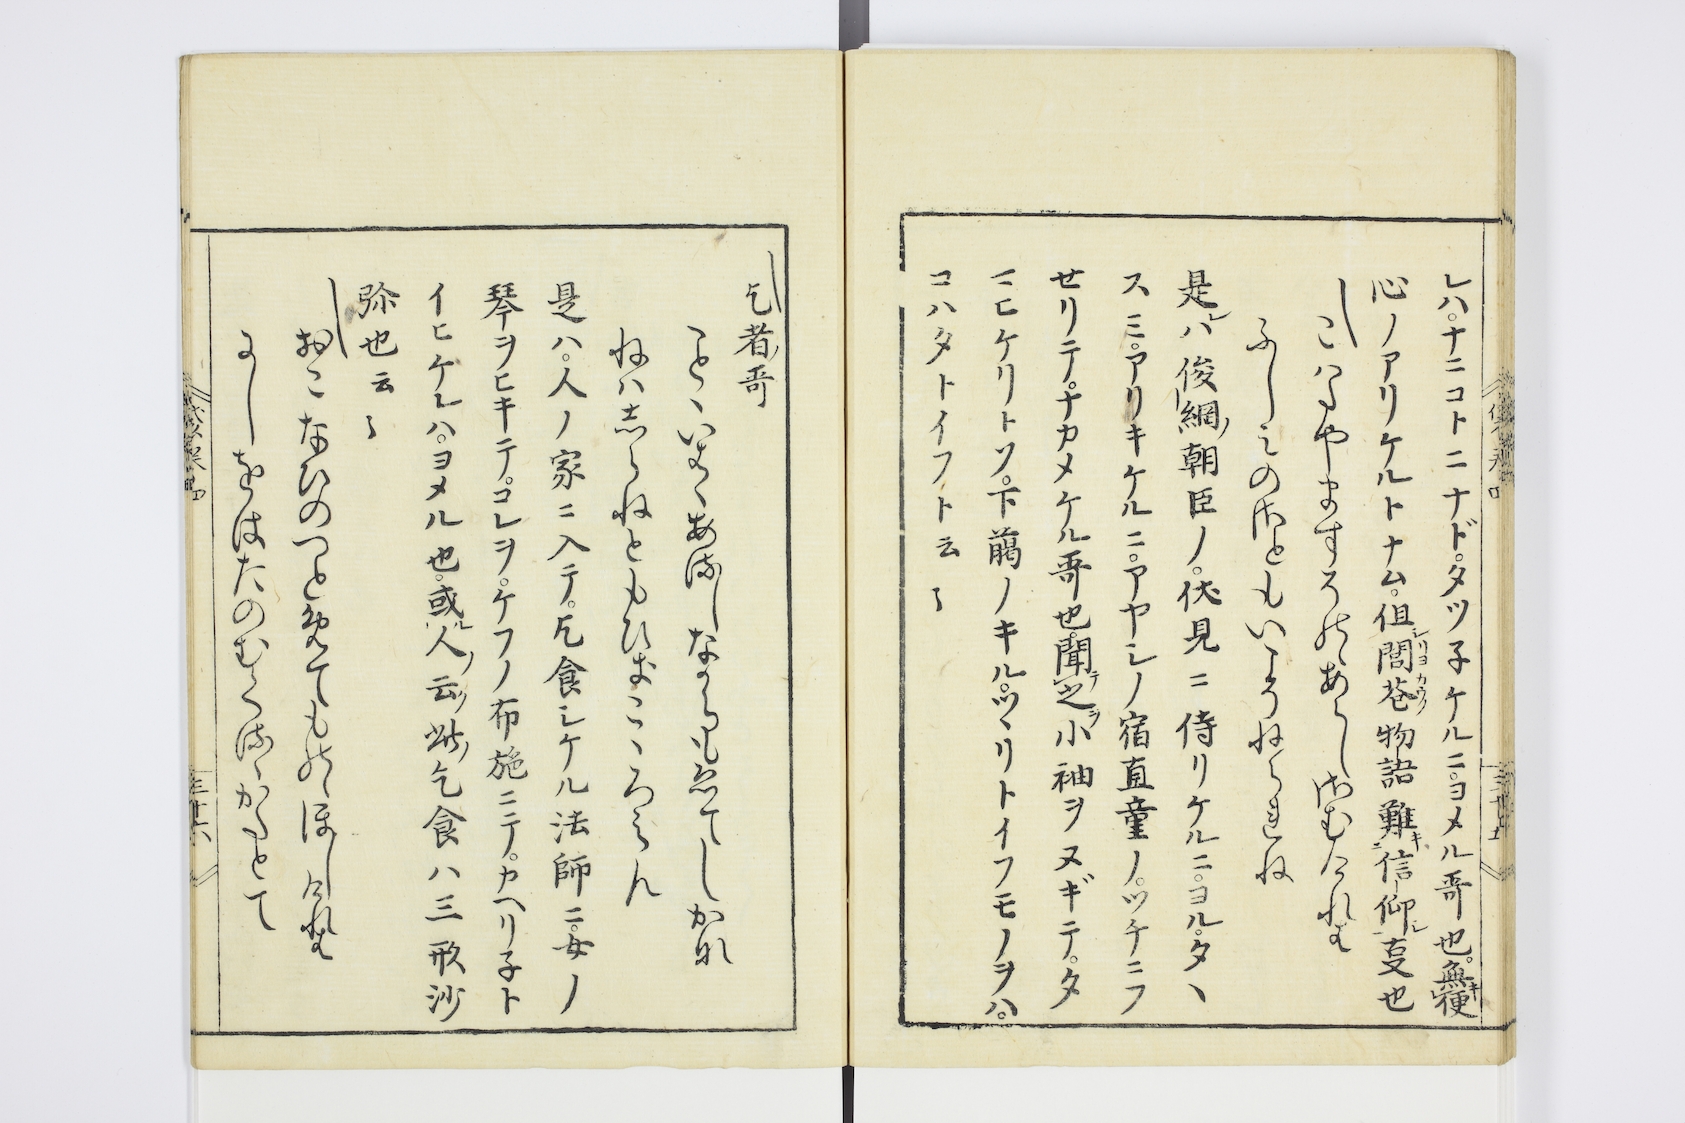 レハ。ナニコトニナド。タツ子ケルニ。ヨメル哥也。無便キ
心ノアリケルトナム。但閭巷物語難信仰事也
こはたやますそのあらしのさむけれは
ふしみのさともいこそねられね
是ハ俊綱朝臣ノ。伏見ニ侍リケルニ。ヨル。タヽ
スミ。アリキケルニ。アヤシノ宿直童ノ。ツケニフ
せリテ。ナカメケル哥也。聞テ之ヲ小袖ヲヌギテ。タ
ニヒケリトソ。下﨟ノキル。ツヽリトイフモノヲハ。
コハタトイフト云々
乞者哥
ことゝいはゝあるしなからもえてしかな
ねはしらねともひきこゝろみん
是ハ。人ノ家ニ入テ。乞食シケル法師ニ。女ノ
琴ヲヒキテ。コレヲ。ケフノ布施ニテ。カヘリ子ト
イヒケレハ。ヨメル也。或人ノ云此乞食ハ三形沙
弥也云々
おこなひのつとめてものゝほしけれは
よしをはたのむくるゝかたとて
袋草紙四
三十六